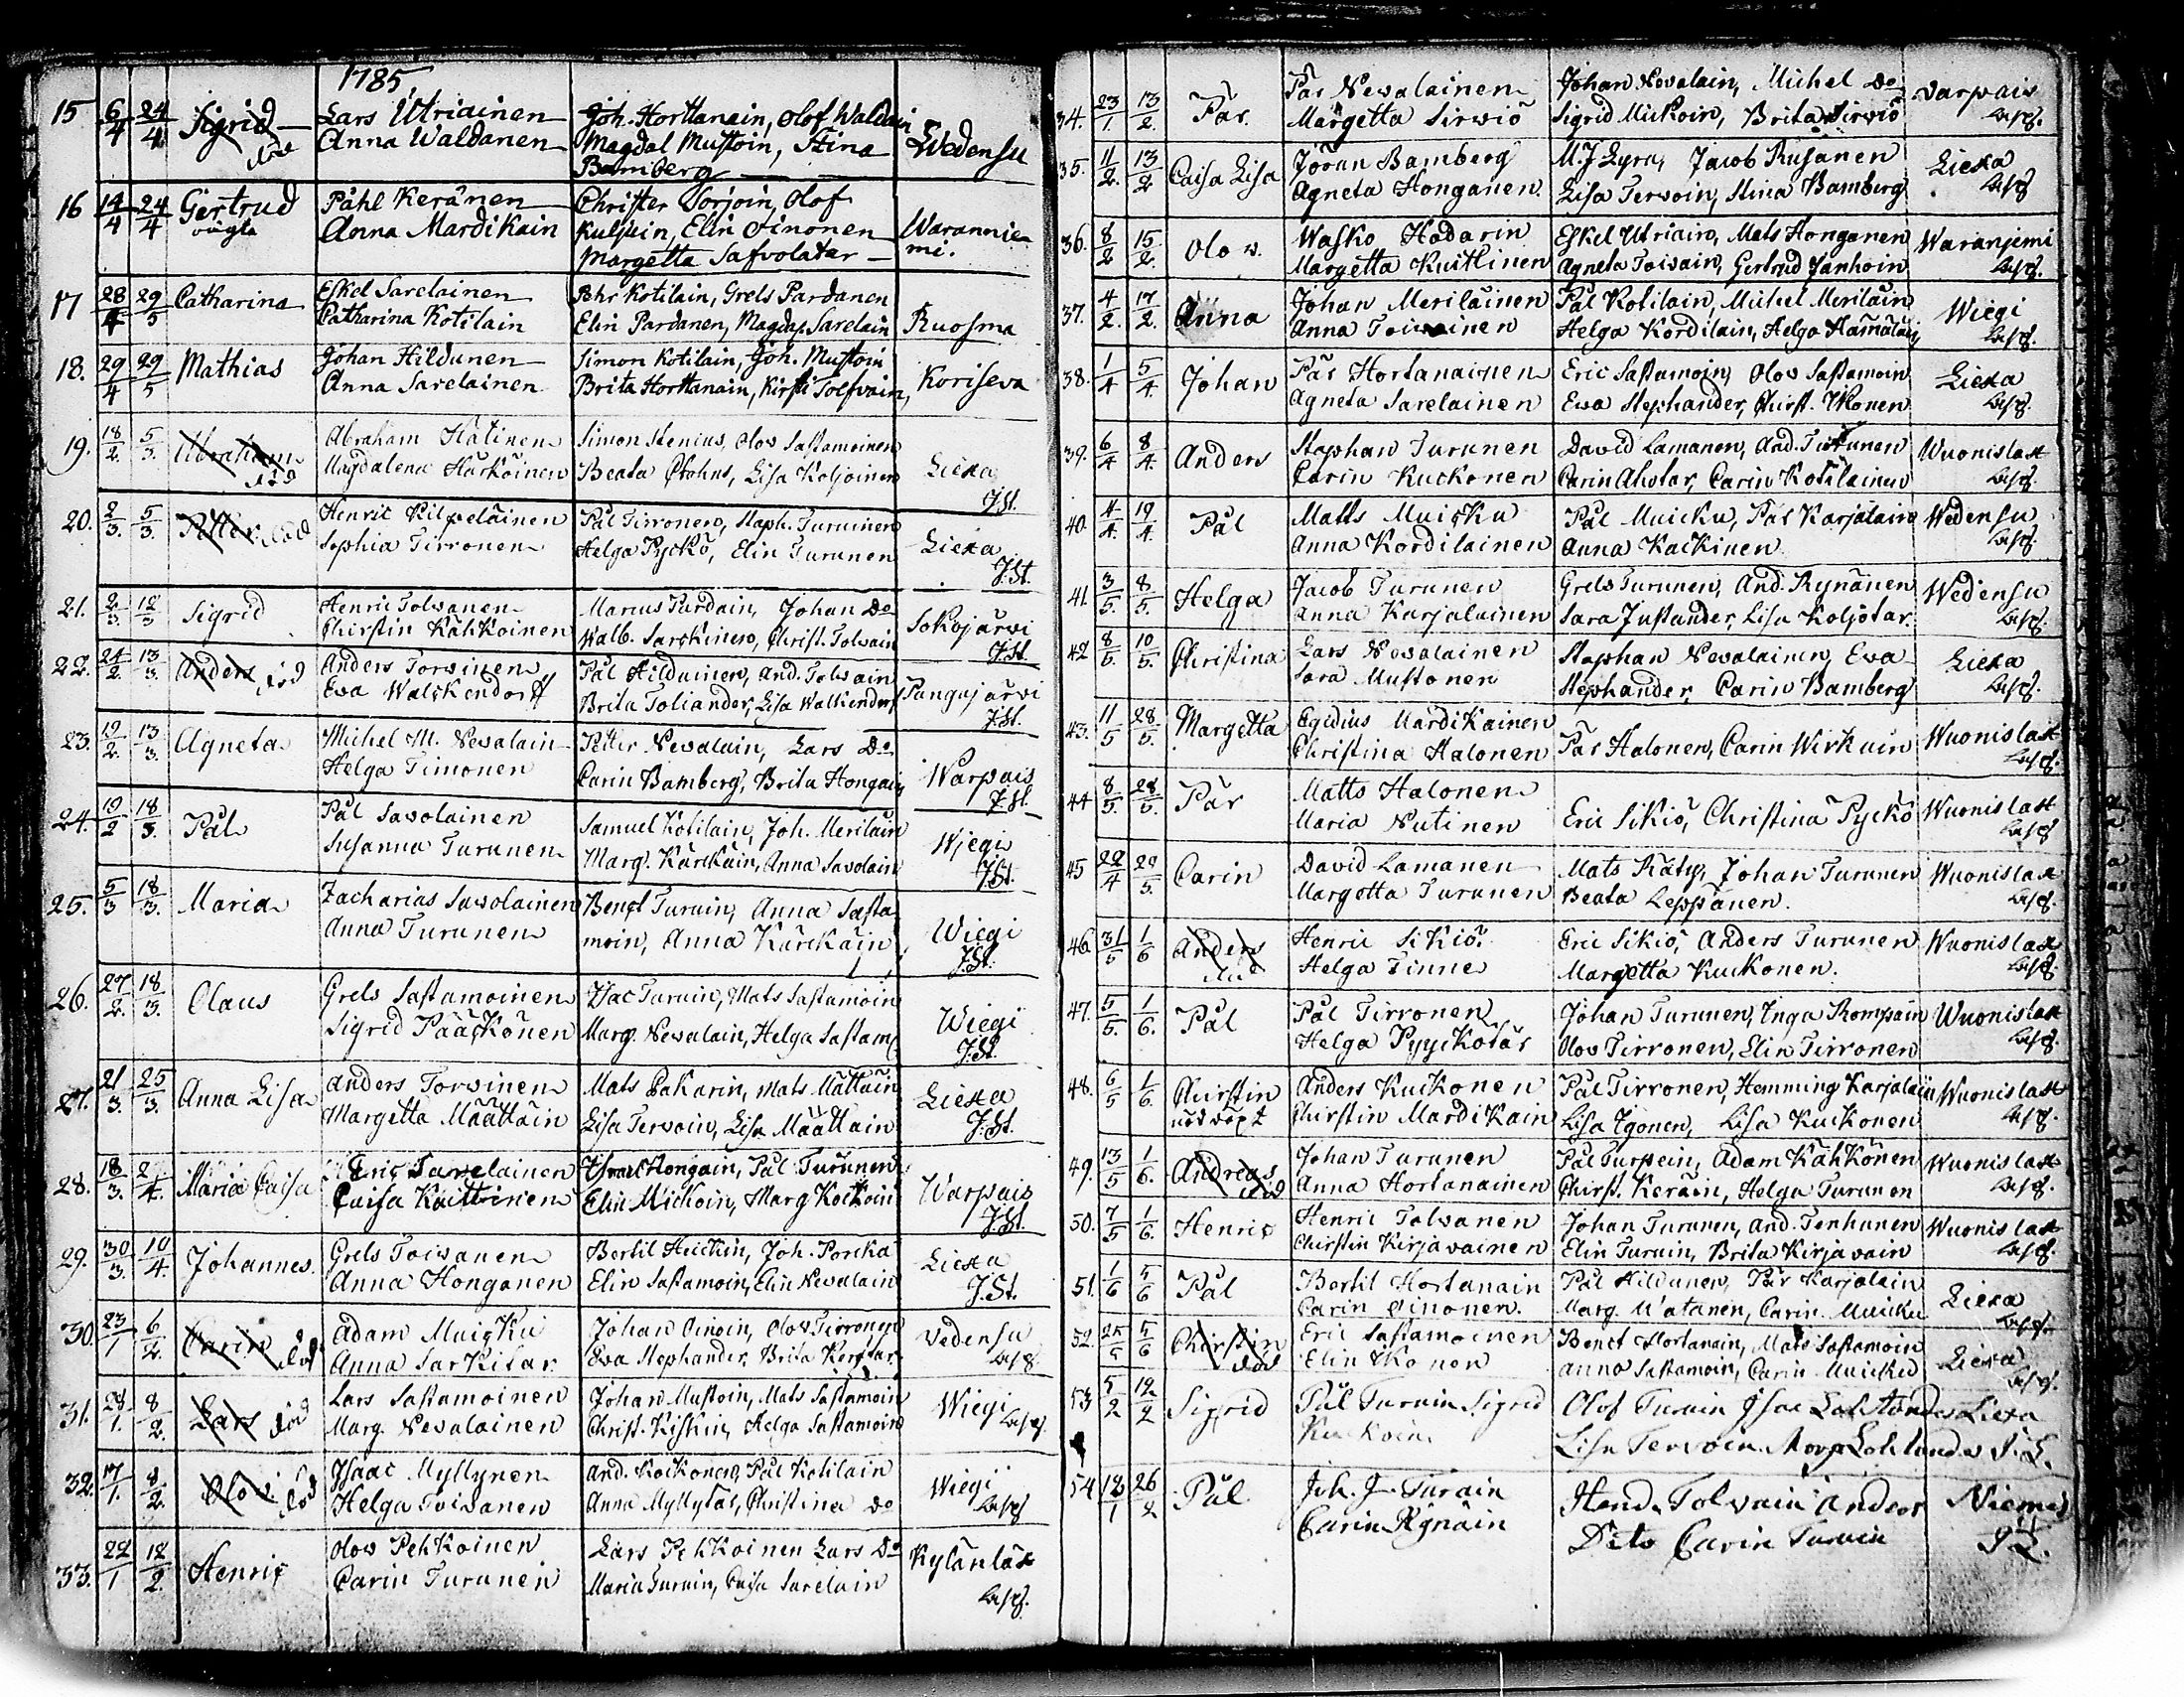 1785
15 6/4 24/4 Sigrid Lars Utriainen Joh. Horttanain, Olof Waldain
död Anna Waldanen Magdal Mustoin, Stina Wedensu
Bamberg
16 14/4 24/4 Gertrud Påhl Keränen Christer Sorjoin, Olof
oägta Anna Mardikain Kuljuin, Elin Sinonen Warannie
Margetta Safvolatar mi.
17 28/4 29/5 Catharina Eskel Sarelainen Pehr Kotilain, Grels Pardanen
Catharina Kotilain Elin Pardanen, Magda. Sarelain Ruosma
18. 29/4 29/5 Mathias Johan Hildunen Simon Kotilain, Joh. Mustoin
Anna Sarelainen Brita Horttanain, Kirsti Tolfvain, Koriseva
19. 18/2. 5/3. Abraham Abraham Hätinen Simon Stenius, Olov Sastamoinen
död Magdalena Härköinen Beata Chohns, Lisa Koljoinen Liexa
J.St.
20. 2/3. 5/3. Petter död Henric Kilpeläinen Pål Tirronen, Staph. Turuinen
Sophia Tirronen Helga Pyckö, Elin Turunen Liexa
J.St.
21. 2/3. 12/3 Sigrid Henric Tolvanen Marcus Pardain, Johan Do
Chirstin Kähköinen Walb. Sarckinen, Christ. Tolvain Sokojärvi
J.St.
22. 24/2. 13/3. Anders död Anders Torvinen Pål Hilduinen, And. Tolvain
Eva Walckendorff Brita Toliander, Lisa Walkendorf Pangajärvi
J.St.
23. 19/2. 13/3. Agneta Michel M. Nevalain Petter Nevalain, Lars Do
Helga Timonen Carin Bamberg, Brita Hongain Warpais
J.St.
24. 19/2 18/3. Pål Pål Savolainen Samuel Kotilain, Joh. Meriläin
Susanna Turunen Marg. Kärckäin, Anna Savolain Wiegi
J.St.
25. 5/3 18/3. Maria Zacharias Savolainen Benct Turuin, Anna Sasta
Anna Turunen moin, Anna Kärckäin Wiegi
J.St.
26. 27/2. 18/3. Olaus Grels Sastamoinen Isac Turuin, Mats Sastamoin
Sigrid Pääsköinen Marg. Nevalain, Helga Sastam. Wiegi
J.St.
27. 21/3. 25/3. Anna Lisa Anders Torvinen Mats Pakarin, Mats Mättäin
Margetta Määttäin Lisa Tervoin, Lisa Määttäin Liexa
J.St.
28. 18/3. 2/4. Maria Caisa Eric Sarelainen Israel Hongain, Pål Turunen
Caisa Kuittinen Elin Mickoin, Marg Kockoin Warpais
J.St.
29. 30/3. 10/4. Johannes. Grels Toivanen Bertil Heickin, Joh. Porcka
Anna Honganen Elin Sastamoin, Elin Nevalain Liexa
J.St.
30. 23/1 6/2. Carin död Adam Muicku Johan Oinoin, Olov Tirronen Vedensu
Anna Sarkitar Eva Stephander, Brita
31. 28/1. 8/2. Lars död Lars Sastamoinen Johan Mustoin, Mats Sastamoin Wiegi
Marg. Nevalainen Christ. Kiskin, Helga Sastamoin
32. 17/1. 8/2. Olov död Isaac Myllynen And. Kockonen, Pål Kotilain Wiegi
Helga Toivanen Anna Myllytär, Christina Do
33. 22/1 12/2. Henric Olov Pehkoinen Lars Pehkoinen Lars Do Kylänlax
Carin Turunen Maria Turuin, Caisa Sarelain
34. 23/1. 13/2. Pär. Pär Nevalainen Johan Nevalain, Michel Do Varpais
Margetta Sirviö Sigrid Mickoin, Brita Sirviö
35. 11/2. 13/2 Caisa Lisa Jöran Bamberg M. J Lyra, Jacob Rusanen Liexa
Agneta Honganen. Lisa Tervoin, Stina Bamberg
36. 8/2 15/2. Olov. Wasko Hodarin Eskel Utriain, Mats Honganen Waranjemi
Margetta Kuittinen Agneta Toivain, Gertrud Janhoin
37. 4/2. 17/2. Anna Johan Meriläinen Pål Kotilain, Michel Meriläin Wiegi
Anna Toivainen Helga Kordilain, Helga Hämäläin
38. 1/4 5/4. Johan Pär Hortanainen Eric Sastamoin, Olov Sastamoin Liexa
Agneta Sarelainen Eva Stephander, Chirst. Ikonen
39. 6/4 8/4. Anders Staphan Turunen David Lamanen, And. Turunen Wuonislax
Carin Kuckonen Carin Ahotar, Carin Kotilainen
40. 4/4. 19/4. Pål Matts Muicku Pål Muicku, Pål Karjalain Wedensu
Anna Kordilainen Anna Kackinen.
41. 3/5. 8/5. Helga Jacob Turunen Grels Turunen, And. Rynänen Wedensu
Anna Karjalainen Sara Justander, Lisa Koljotar.
42 8/5. 10/5. Christina Lars Nevalainen Staphan Nevalainen, Eva Liexa
Sara Mustonen Stephander, Carin Bamberg
43. 11/5 28/5. Margetta Egidius Mardikainen Pär Halonen, Carin Wirkuin Wuonislax
Christina Halonen
44 8/5. 28/5. Pär Matts Halonen Eric Sikiö, Christina Pyckö Wuonislax
Maria Nutinen
45 22/4 29/5. Carin David Lamanen Mats Räty, Johan Turunen Wuonislax
Margetta Turunen Beata Leppänen.
46. 31/5 1/6 Anders Henric Sikiö. Eric Sikiö, Anders Turunen Wuonislax
död Helga Tinne Margetta Kuckonen.
47. 5/5. 1/6. Pål Pål Tirronen Johan Turunen, Inga Rompain Wuonislax
Helga Pyyckötär Olov Tirronen, Elin Tirronen
48. 6/5 1/6. Chirstin Anders Kuckonen Pål Tirronen, Hemming Karjalain Wuonislax
nöddöpt Chirstin Mardikain Lisa Igonen, Lisa Kuckonen
49. 13/5 1/6. Andreas Johan Turunen Pål Turpein, Adam Kähkönen Wuonislax
död Anna Hortanainen Chirst. Keräin, Helga Turunen
50. 7/5 1/6. Henric Henric Tolvanen Johan Turunen, And. Tenhunen Wuonislax
Chirstin Kirjavainen Elin Turuin, Brita Kirjavain
51. 1/6 5/6 Pål Bertil Hortanain Pål Hildunen, Pär Karjalain Liexa
Carin Oinonen. Marg. Matanen, Carin Muicku
52. 25/5 5/6 Chirstin Eric Sastamoinen Benct Hortanain, Mats Sastamoin Liexa
död Elin Ikonen Anna Sastamoin, Carin Muicku
53 5/2 12/2 Sigrid Pål Turuin Sigrid Olof Turuin Isac Lohlander Liexa
Kuckoin Lisa Tervoin Marg Lohlander J. L.
54 13/1 26/2 Pål Joh. J. Turain Hend. Tolvain Anders Niemis
Carin Rynäin Dito Carin Turuin J L.